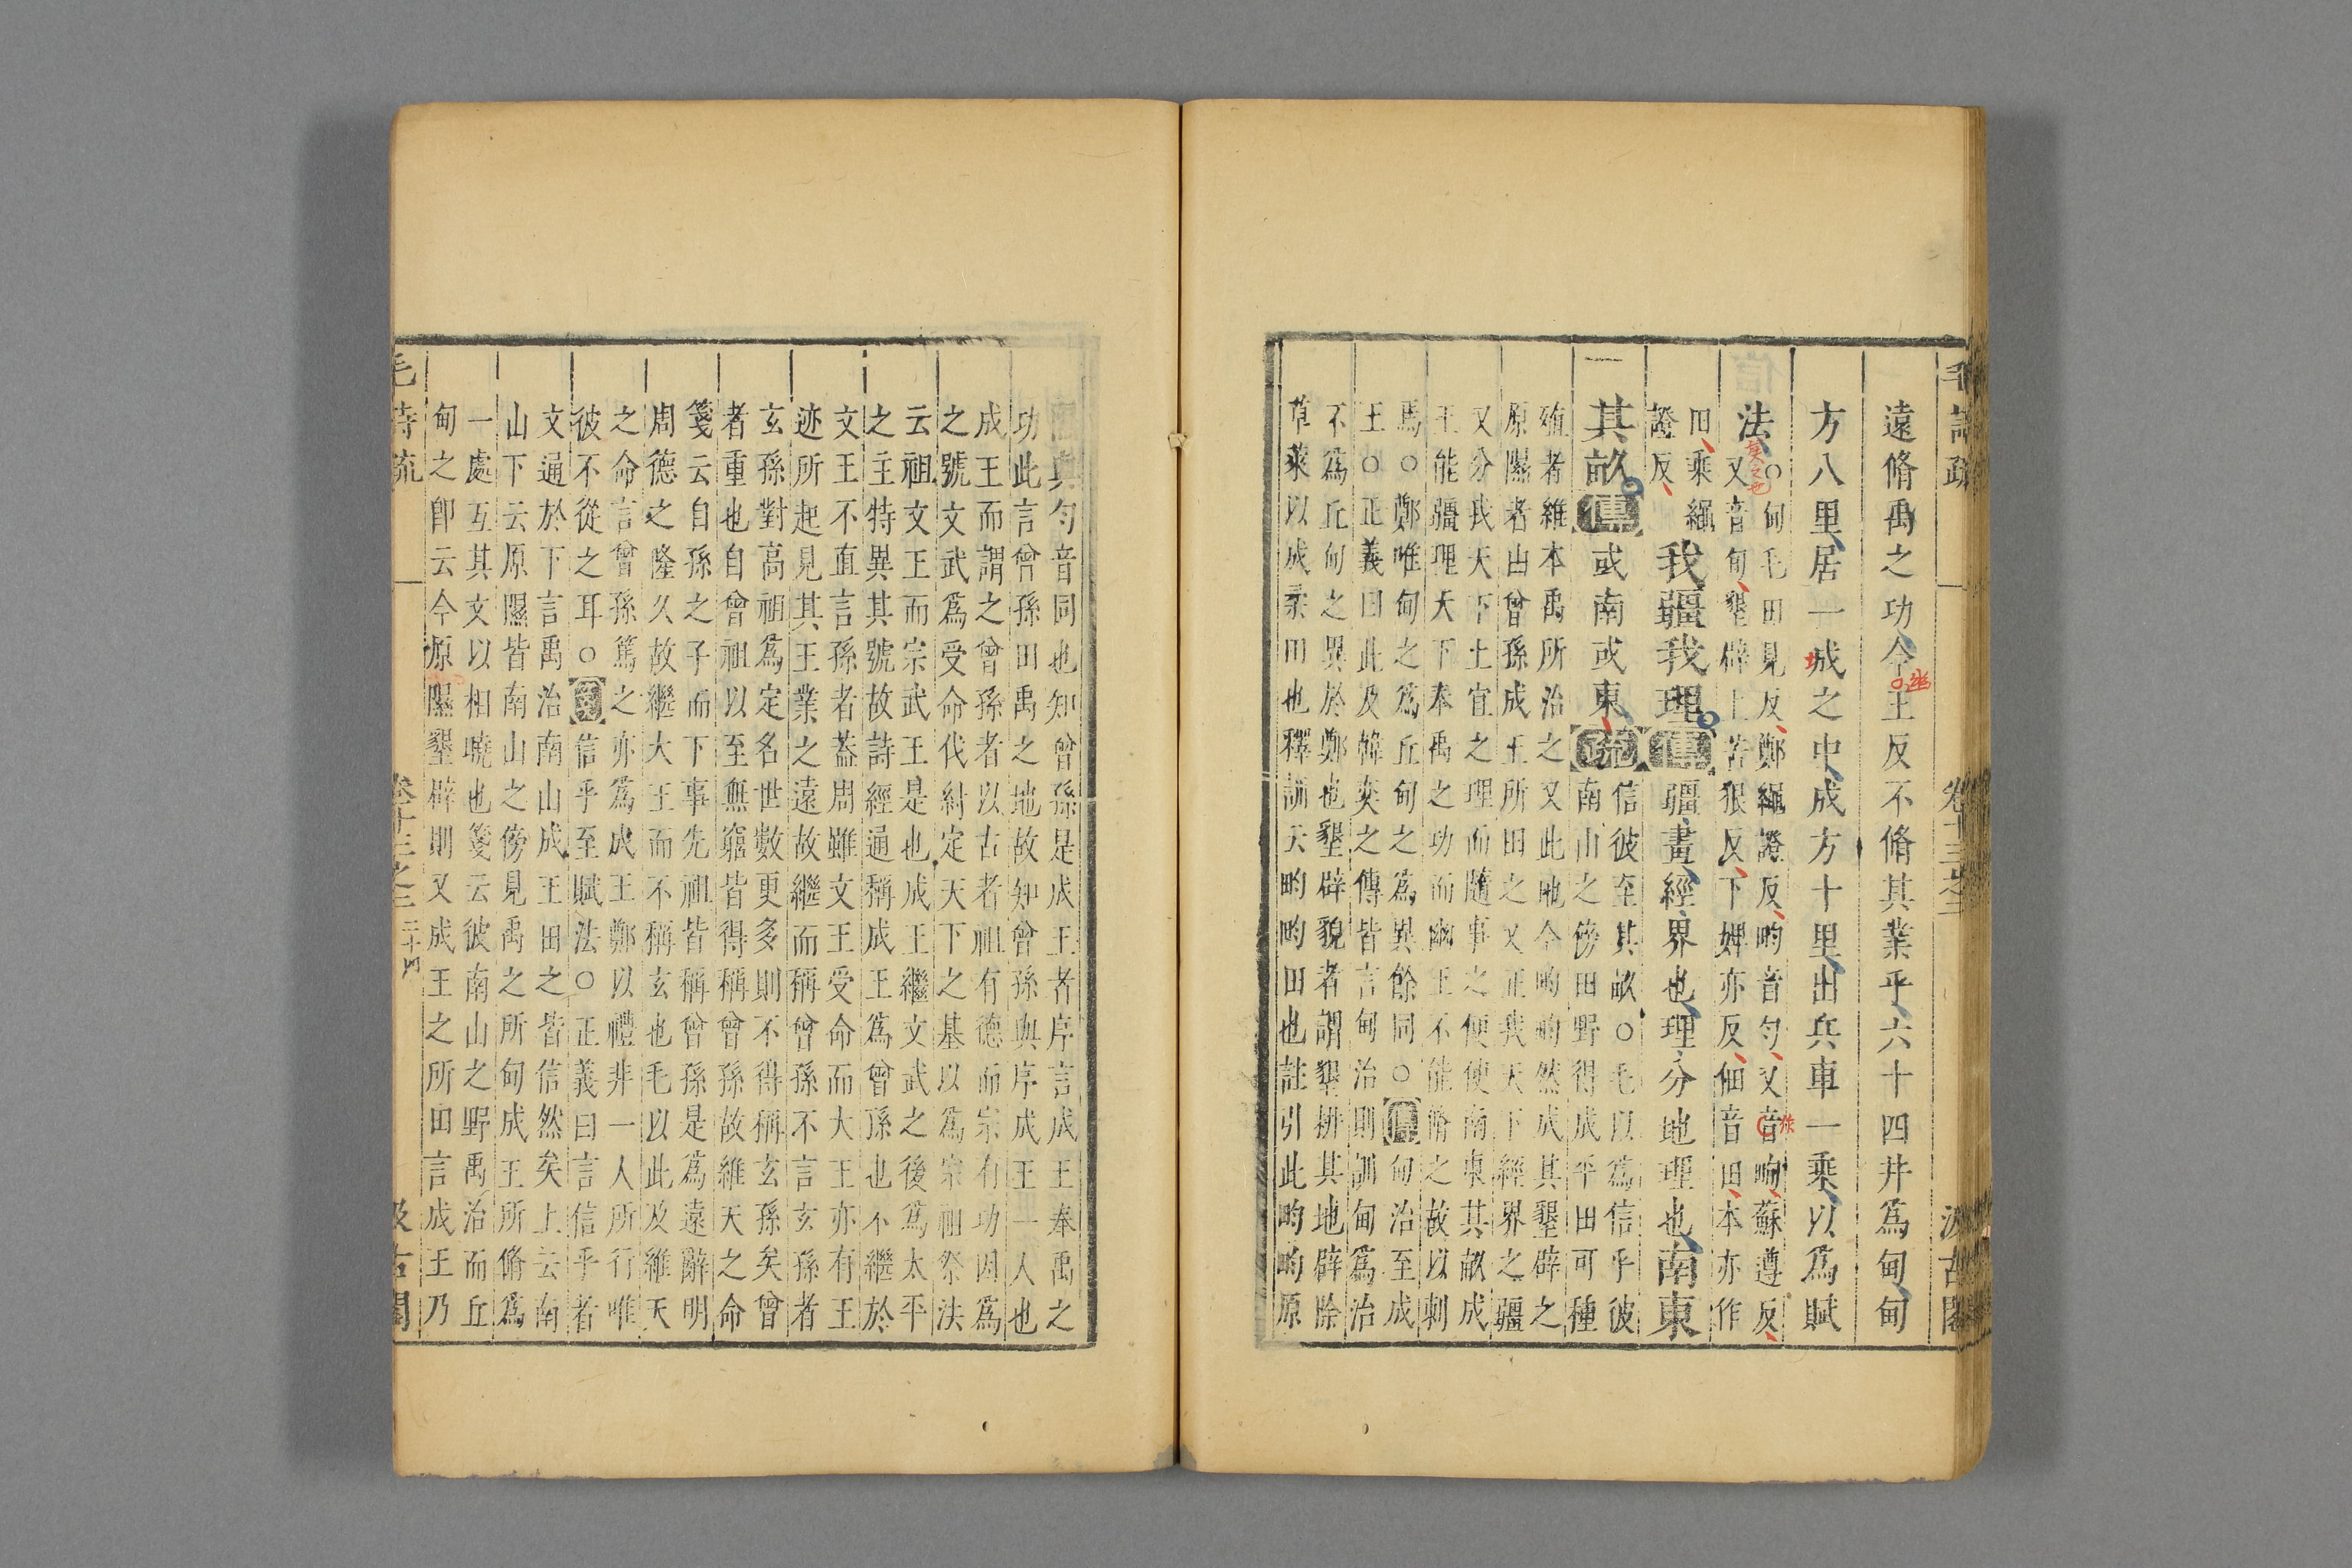 毛詩疏 卷十三之二 汲古閣
遠脩禹之功今王反不脩其業乎六十四井爲甸甸
方八里居一成之中成方十里出兵車一乘以爲賦
法
○甸毛田見反鄭繩證反畇音勻又音昫蘇遵反
又音甸墾辟上苦狠反下婢亦反佃音田本亦作
田乘繩
證反
我疆我理傳疆畫經界也理分地理也南東
其畝傳或南或東疏
信彼至其畝○毛以爲信乎彼
南山之傍田野得成平田可種
殖者維本禹所治之又此地今畇畇然成其墾辟之
原隰者由曾孫成王所田之又正我天下經界之疆
又分我天下土宜之理而隨事之便使南東其畝成
王能疆理天下奉禹之功而幽王不能脩之故以刺
焉○鄭唯甸之爲丘甸之爲異餘同○傳甸治至成
王○正義曰此及韓奕之傳皆言甸治則訓甸爲治
不爲丘甸之異於鄭也墾辟貌者謂墾耕其地辟除
草萊以成柔田也釋訓云畇畇田也註引此畇畇原
隰與勻音同也知曾孫是成王者序言成王奉禹之
功此言曾孫田禹之地故知曾孫與序成王一人也
成王而謂之曾孫者以古者祖有德而宗有功因爲
之號文武爲受命伐紂定天下之基以爲宗祖祭法
云祖文王而宗武王是也成王繼文武之後爲太平
之主特異其號故詩經通稱成王爲曾孫也不繼於
文王不直言孫者葢周雖文王受命而大王亦有王
迹所起見其王業之遠故繼而稱曾孫不言玄孫者
玄孫對高祖爲定名世數更多則不得稱玄孫矣曾
者重也自曾祖以至無窮皆得稱曾孫故維天之命
箋云自孫之子而下事先祖皆稱曾孫是爲遠辭明
周德之隆久故繼大王而不稱玄也毛以此及維天
之命言曾孫篤之亦爲成王鄭以禮非一人所行唯
彼不從之耳○箋信乎至賦法○正義曰言信乎者
文通於下言禹治南山成王田之皆信然矣上云南
山下云原隰皆南山之傍見禹之所甸成王所脩爲
一處互其文以相曉也箋云彼南山之野禹治而丘
甸之卽云今原隰墾辟則又成王之所田言成王乃
毛詩疏 卷十三之二 二十四 汲古閣